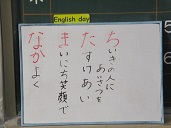 English day
ちいきの人に
あいさつを
たすけあい
まいにち笑顔で
なかよく